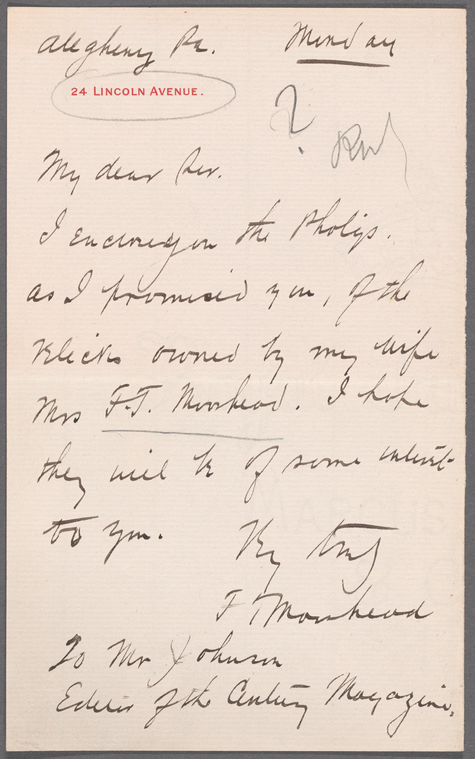 Alegheny Pa. Monday
24 LINCOLN AVENUE.
?
My dear Sir.
I enclose you the Photgs.
as I promised you, of the
Relicks owned by my wife
Mrs F. T. Moorhead. I hope
they will be of some interest
to you.
Very truly
F T Moorhead
To Mr Johnson
Editor of the Century Magazine.